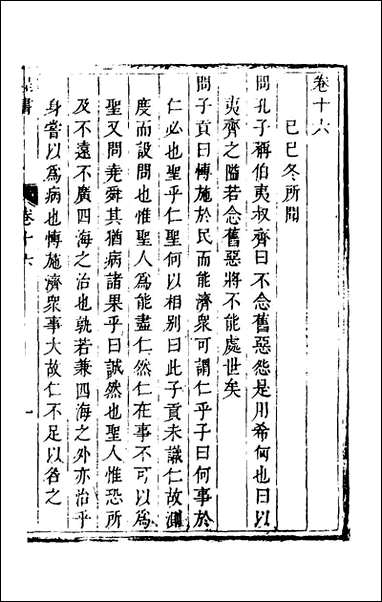 卷十六
己巳冬所聞
問孔子稱伯夷叔齊曰不念舊惡怨是用希何也曰以
夷齊之隘若念舊惡將不能處世矣
問子貢曰博施於民而能濟衆可謂仁乎子曰何事於
仁必也聖乎仁聖何以相別曰此子貢未識仁故測
度而設問也惟聖人爲能盡仁然仁在事不可以爲
聖又問堯舜其猶病諸果乎曰誠然也聖人惟恐所
及不遠不廣四海之治也孰若兼四海之外亦治乎
身嘗以爲病也博施濟衆事大故仁不足以名之
卷十六
一